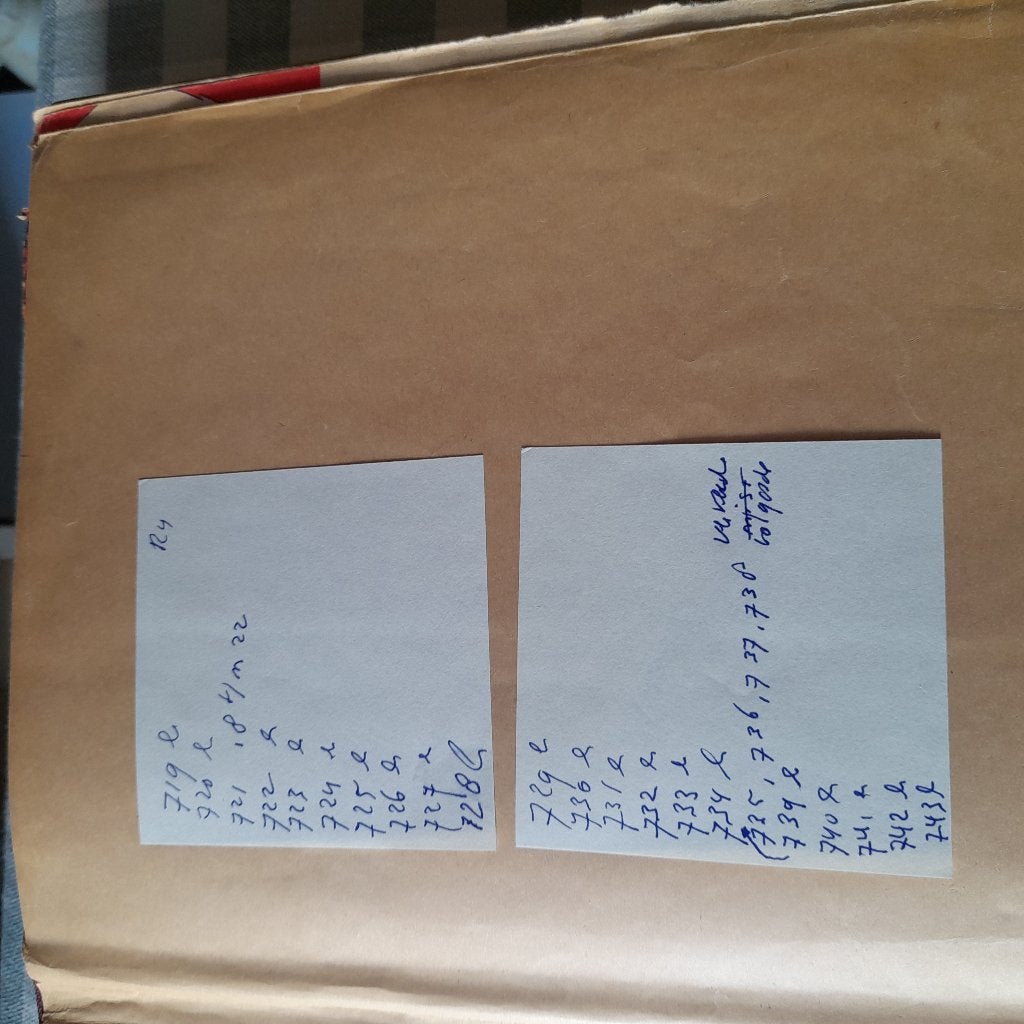 R4
719 l
720 l
721, 8 t/m 22
722 l
723 l
724 l
725 l
726 l
727 l
728 l
729 l
730 l
731 l
732 l
733 l
734 l
735, 736, 737, 738 verkeerde
volgorde
739 l
740 l
741 l
742 l
743 l